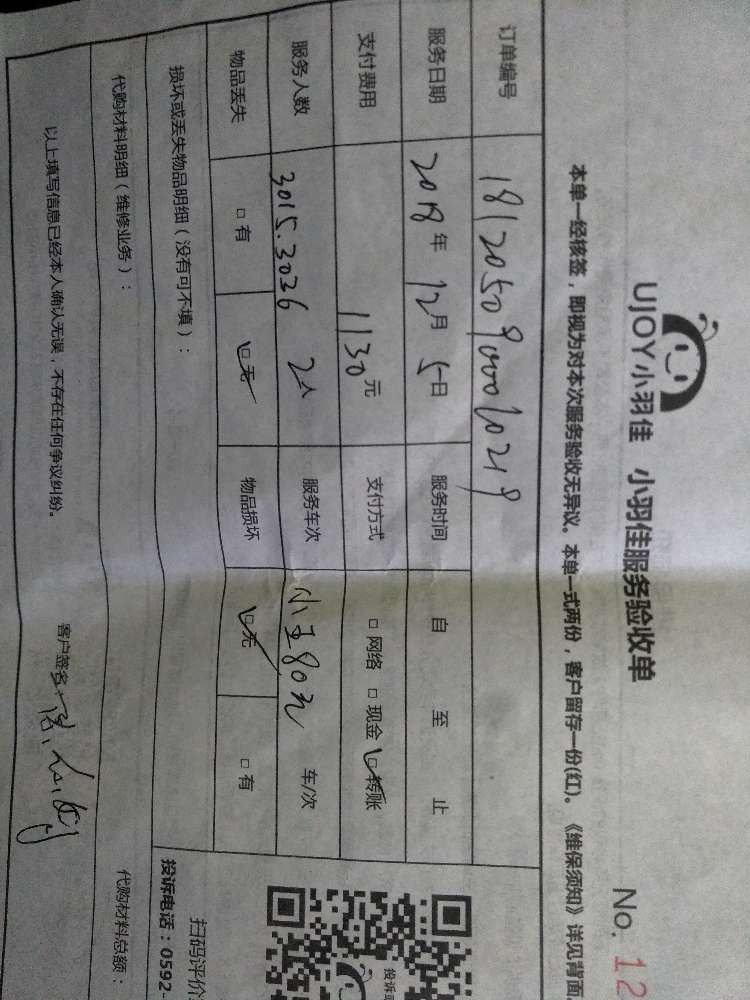 UJOY小羽佳 小羽佳服务验收单
No. 12
本单一经核签，即视为对本次服务验收无异议。本单一式两份，客户留存一份(红)。《维保须知》详见背面
订单编号
服务日期 2018年 12月 5日 服务时间 自 至 止
支付费用 1130元 支付方式 □ 网络 □ 现金 □ 转账
服务人数 3015.3036 2人 服务车次 车/次
物品丢失 □ 有 □ 无 物品损坏 □ 无 □ 有
损坏或丢失物品明细（没有可不填）：
代购材料明细（维修业务）： 代购材料总额：
以上填写信息已经本人确认无误，不存在任何争议纠纷。 客户签名
扫码评价
投诉电话：0592-